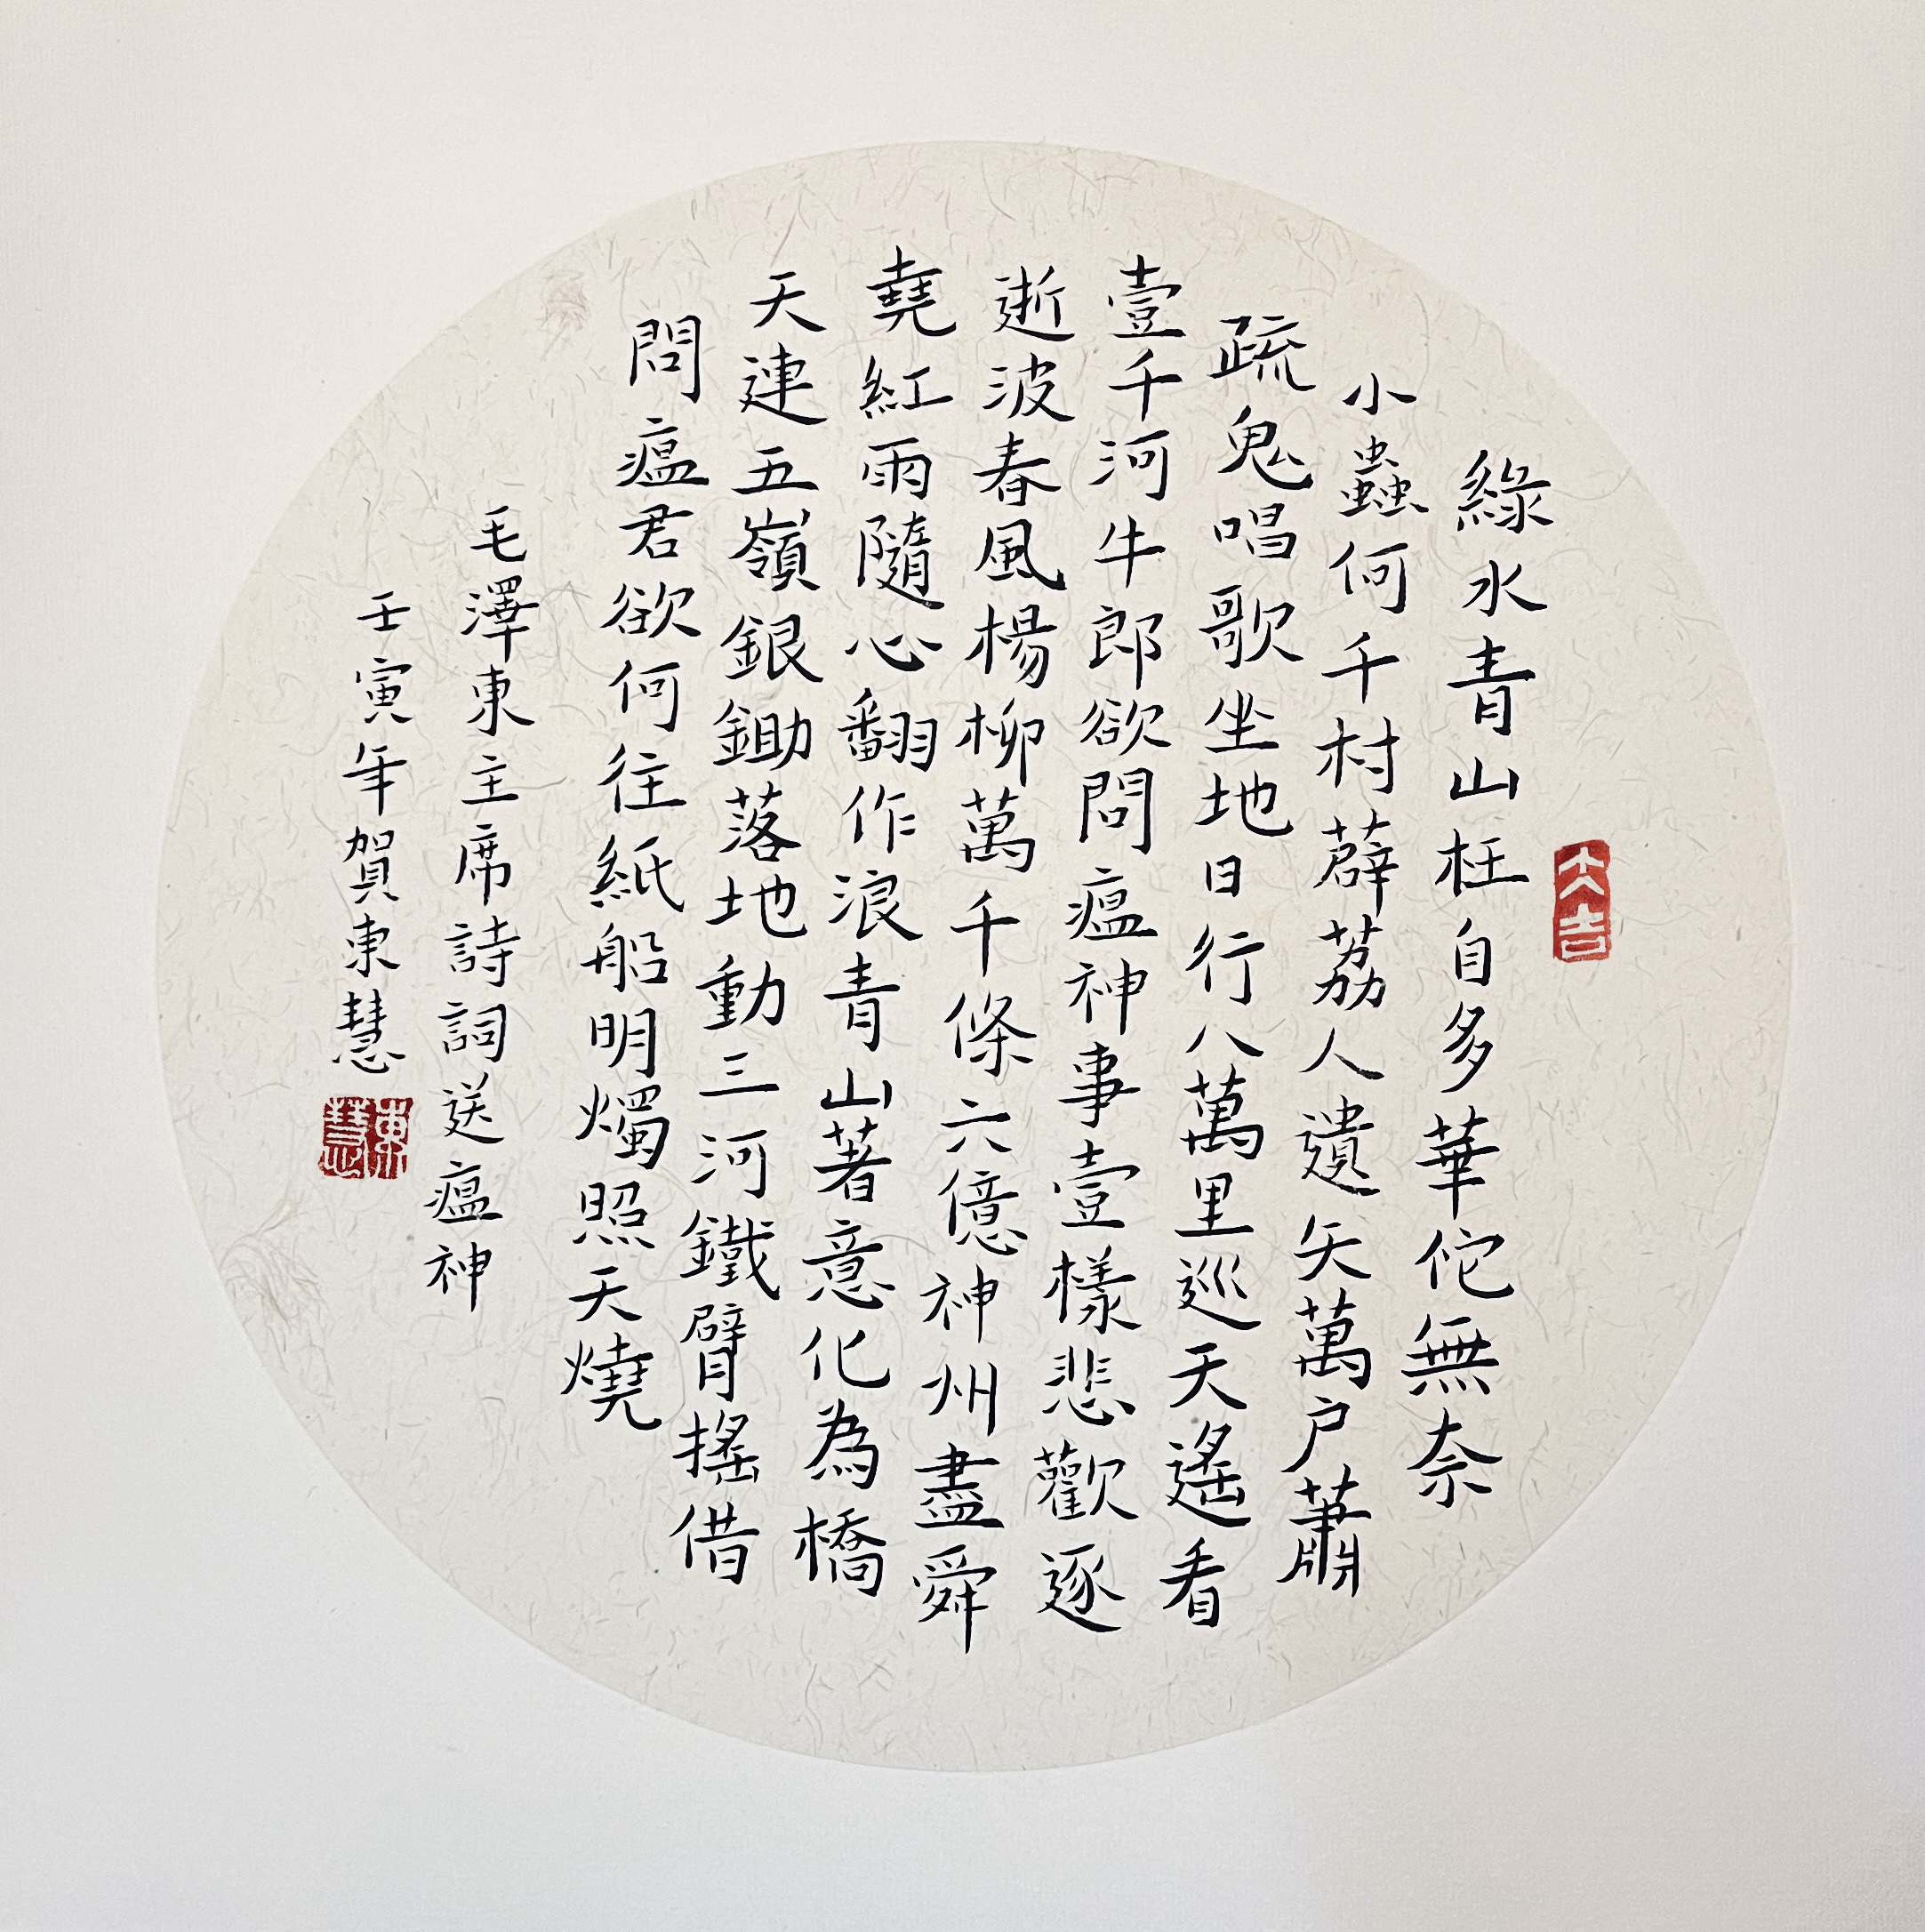 大吉
綠水青山枉自多華佗無奈
小蟲何千村薜荔人遺矢萬户蕭
疏鬼唱歌坐地日行八萬里巡天遙看
壹千河牛郎欲問瘟神事壹樣悲歡逐
逝波春風楊柳萬千條六億神州盡舜
堯紅雨隨心翻作浪青山著意化為橋
天連五嶺銀鋤落地動三河鐵臂搖借
問瘟君欲何往紙船明燭照天燒
毛澤東主席詩詞送瘟神
壬寅年賀東慧
東慧